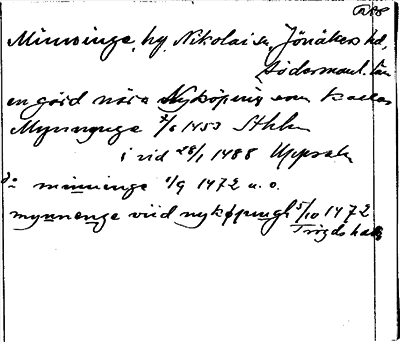 Minninge, hg, Nikolai sn, Jönåkers hd,
Södermanl. län
en gård nära Nyköping som kallas
Mynnunge 7/6 1453 Sthlm
i vid 28/1 1488 Uppsala
do minninge 1/9 1472 u. o.
mynnenge viid nykøpungh 5/10 1472